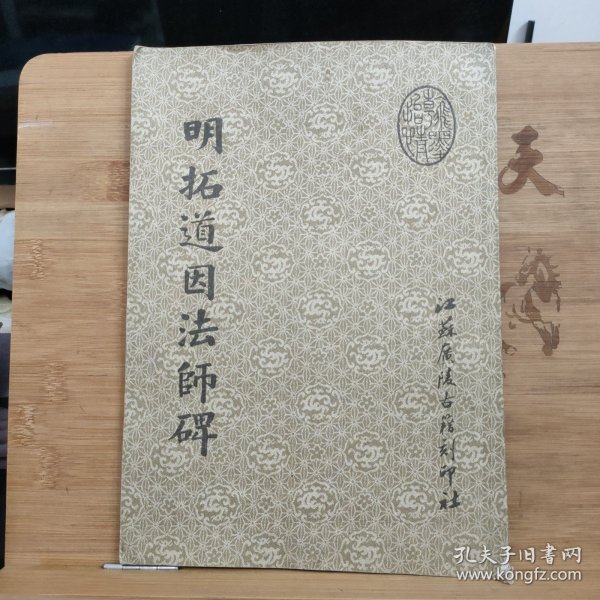 明拓道因法師碑
江蘇廣陵古籍刻印社
天
孔夫子旧书网
www.kongfz.com